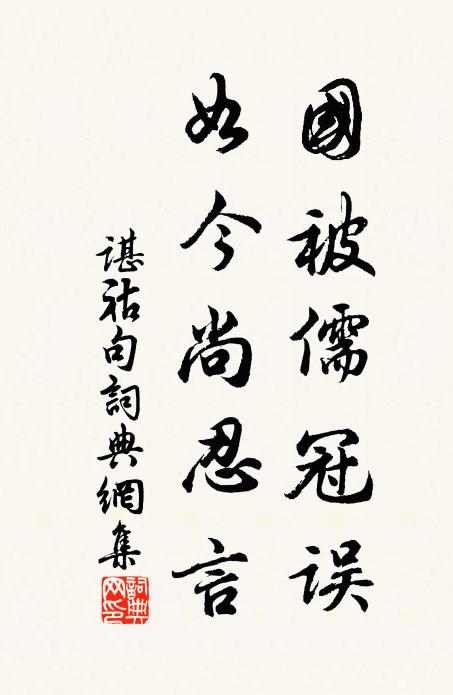 國被儒冠误
如今尚忍言
谌祜句詞典網集
詞典
网印